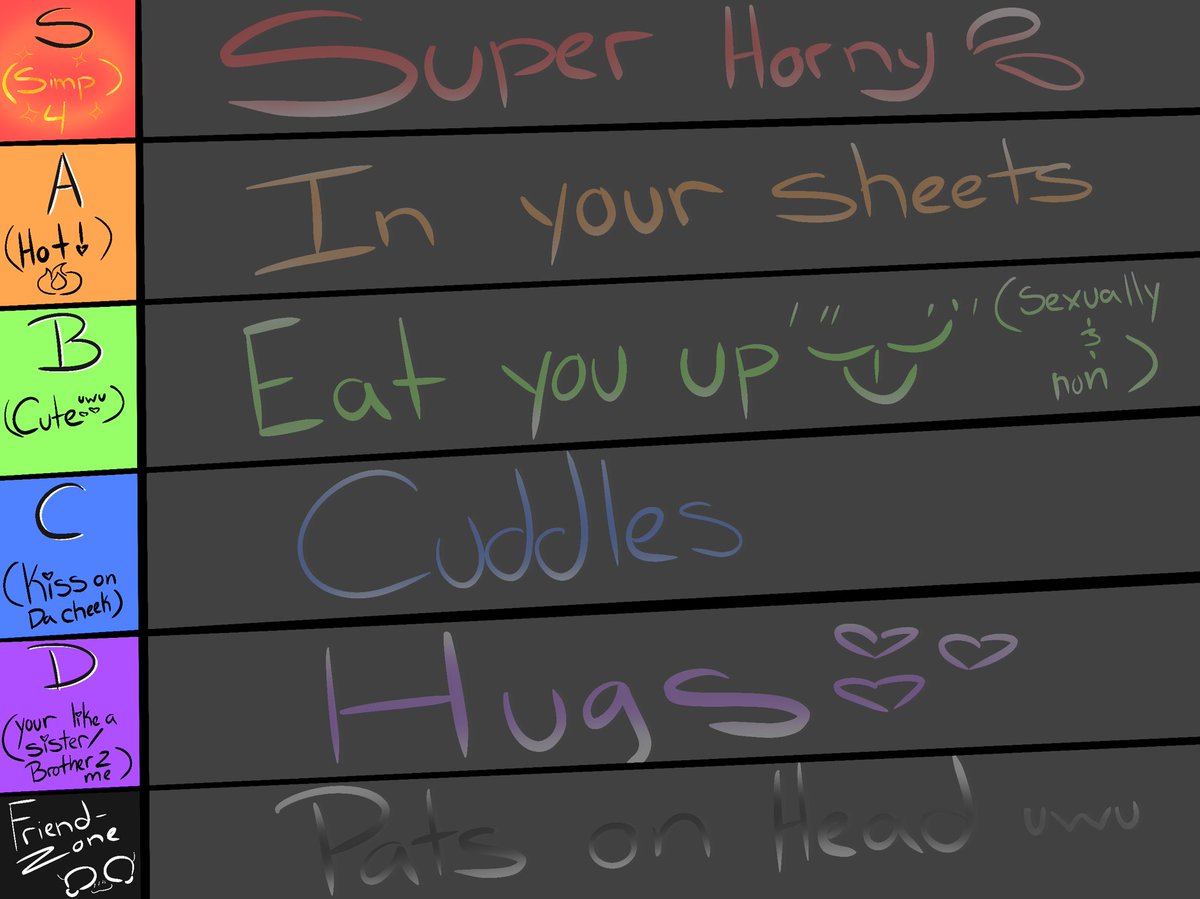 S
(Simp)
4
Super Horny
A
(Hot!)
In your sheets
B
(Cute uwu)
Eat you up (Sexually
&
non)
C
(Kiss on
Da cheek)
Cuddles
D
(your like a
sister/
Brother 2
me)
Hugs
Friend-
Zone
Pats on Head uwu